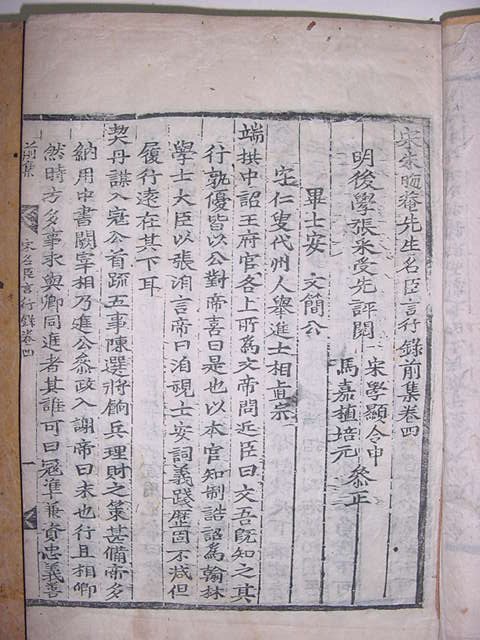 宋朱晦菴先生名臣言行錄前集卷四
明後學張采受先評閱 宋學顯令申
馬嘉植培元 叅正
畢士安 文簡公
字仁叟代州人舉進士相眞宗
端拱中詔王府官各上所爲文帝問近臣曰文吾旣知之其
行孰優皆以公對帝喜曰是也以本官知制誥詔爲翰林
學士大臣以張洎言帝曰洎視士安詞義踐歷固不减但
履行遠在其下耳
契丹謀入寇公首疏五事陳選將餉兵理財之策甚備帝多
納用中書闕宰相乃進公叅政入謝帝曰未也行且相卿
然時方多事求與卿同進者其誰可曰寇準兼資忠義善
前集
宋名臣言行錄卷四
一